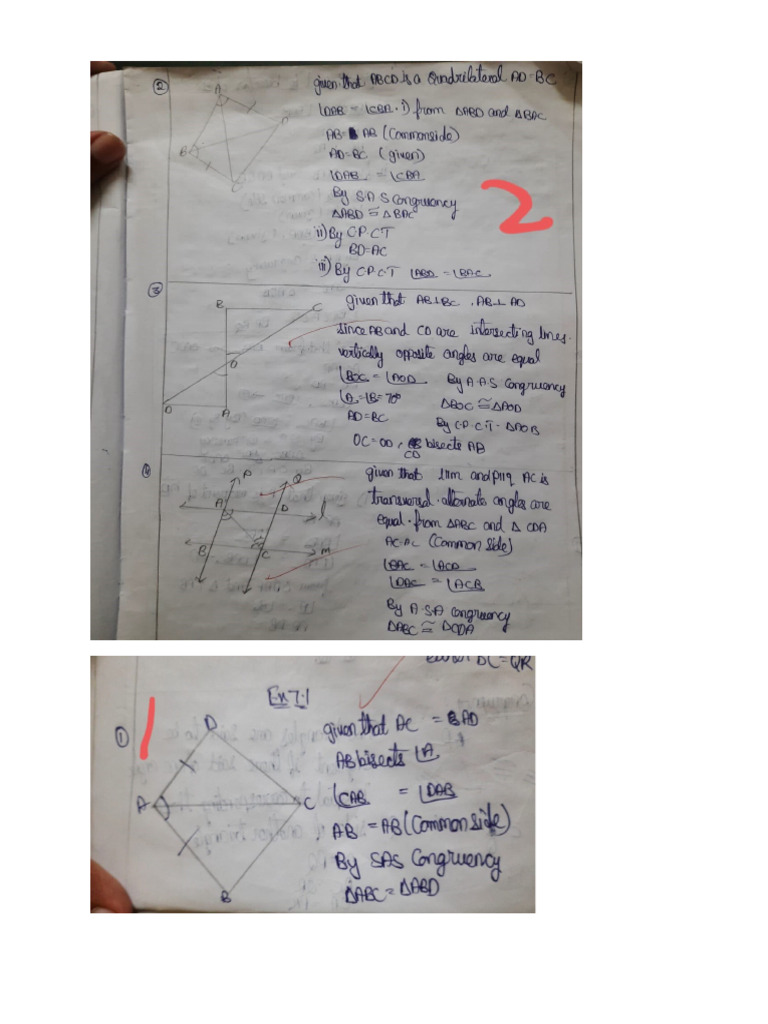 ②
given that ABCD is a Quadrilateral AD=BC
∠DAB = ∠CBA . i) from △ABD and △BAC
AB= AB (Common side)
AD=BC (given)
∠DAB = ∠CBA
By S.A.S Congruency
△ABD ≅ △BAC
ii) By C.P.C.T
BD=AC
iii) By C.P.C.T ∠ABD = ∠BAC
A
B
C
2
③
given that AB⊥BC , AB⊥AD
since AB and CD are intersecting lines.
vertically opposite angles are equal
∠BOC = ∠AOD By A.A.S Congruency
∠A=∠B=90° △BOC ≅ △AOD
AD=BC By C.P.C.T- △AOB
OC=OD , bisects AB
CD
B C
O
D A
④
given that l||m and p||q AC is
transversal. alternate angles are
equal. from △ABC and △ CDA
AC=AC (Common side)
∠BAC = ∠ACD
∠DAC = ∠ACB
By A.S.A Congruency
△ABC ≅ △CDA
P Q
A D l
B C m
even DC=QR
Ex 7.1
1
①
given that AC = AD
AB bisects ∠A
∠CAB = ∠DAB
AB = AB (Common side)
By SAS Congruency
△ABC = △ABD
D
A C
B